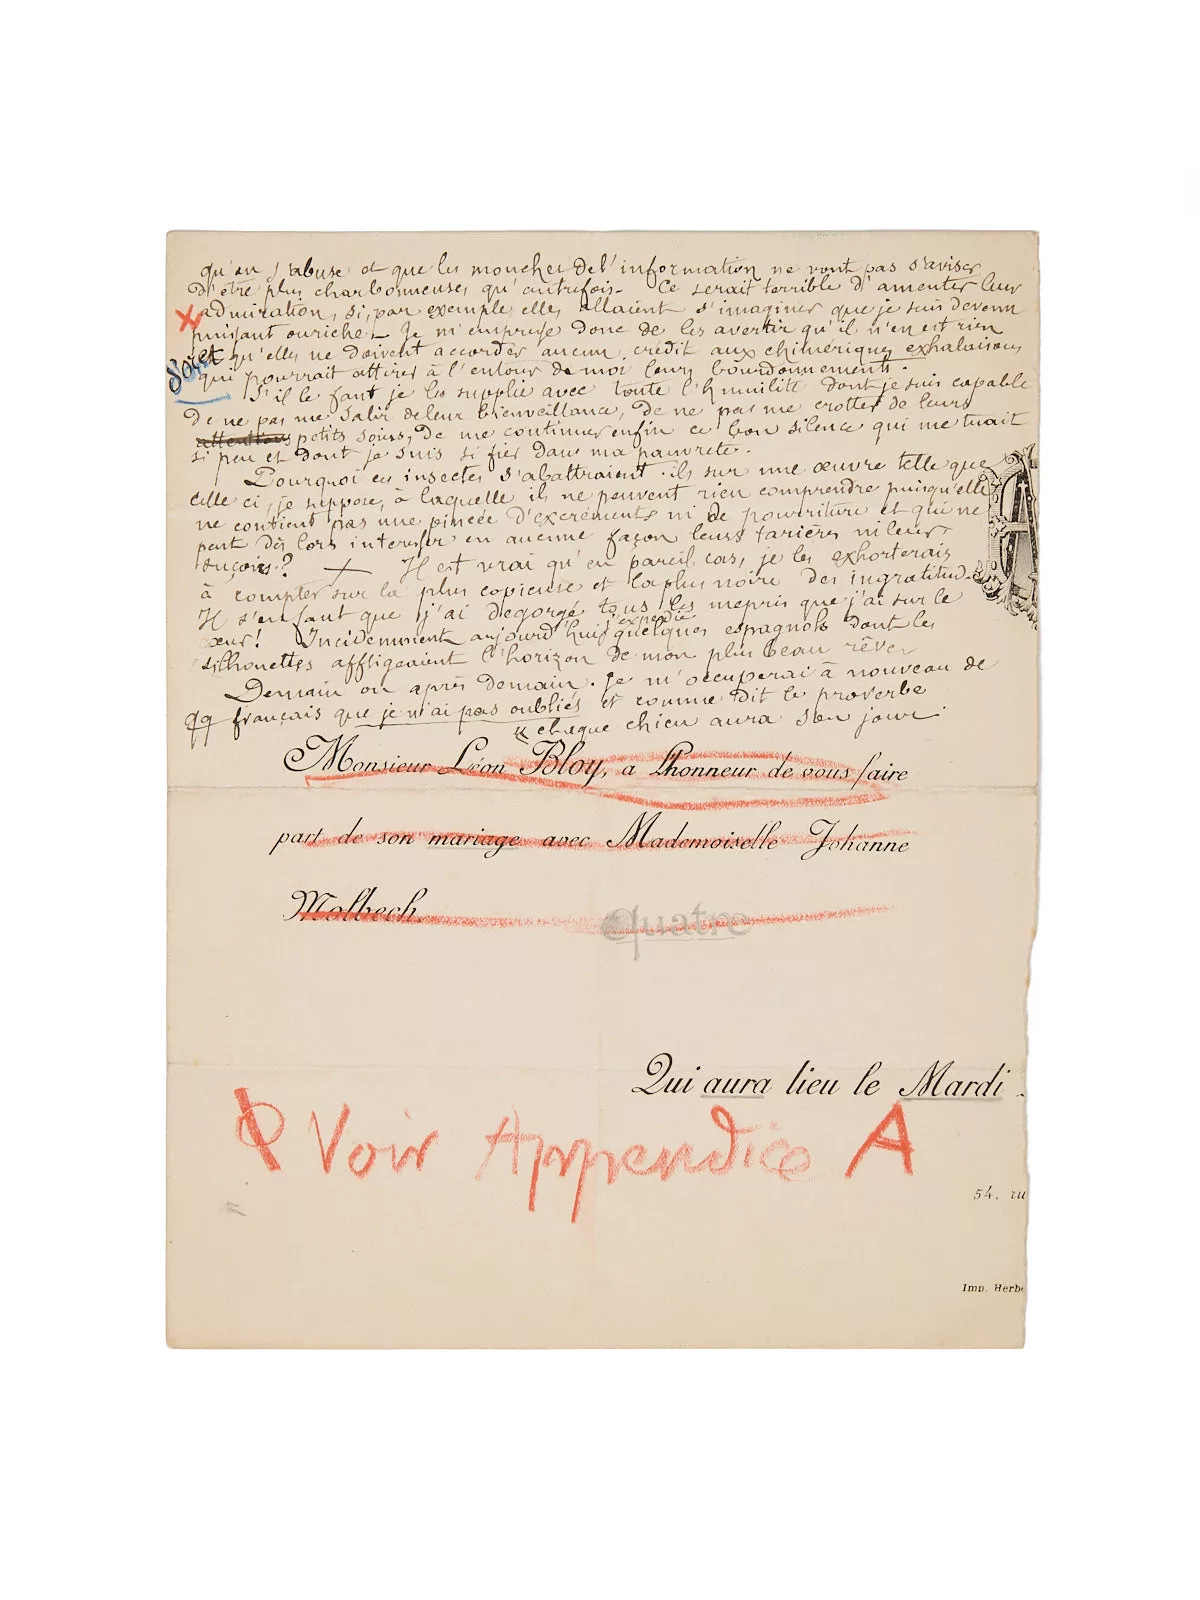 qu'on s'abuse et que les mouches de l'information ne vont pas s'aviser
d'être plus charbonneuses qu'autrefois. Ce serait terrible d'ameuter leur
admiration, si, par exemple, elles allaient s'imaginer que je suis devenu
puissant ou riche. Je m'empresse donc de les avertir qu'il n'en est rien
et qu'elles ne doivent accorder aucun crédit aux chimériques exhalaisons
qui pourrait attirer à l'entour de moi leurs bourdonnements.
S'il le faut je les supplie avec toute l'humilité dont je suis capable
de ne pas me salir de leur bienveillance, de ne pas me crotter de leurs
attentions petits soins, de me continuer enfin ce bon silence qui me tuait
si peu et dont je suis si fier dans ma pauvreté.
Pourquoi ces insectes s'abattraient-ils sur une œuvre telle que
celle ci, je suppose, à laquelle ils ne peuvent rien comprendre puisqu'elle
ne contient pas une pincée d'excréments ni de pourriture et qui ne
peut dès lors intéresser en aucune façon leurs tarières ni leurs
suçoirs? Il est vrai qu'en pareil cas, je les exhorterais
à compter sur la plus copieuse et la plus noire des ingratitudes
Il s'en faut que j'ai dégorgé tous les mépris que j'ai sur le
cœur! Incidemment aujourd'hui j'expédie quelques espagnols dont les
silhouettes affligeaient l'horizon de mon plus beau rêve.
Demain ou après demain. Je m'occuperai à nouveau de
qq français que je n'ai pas oubliés et comme dit le proverbe
« chaque chien aura son jour.
Monsieur Léon Bloy, a l'honneur de vous faire
part de son mariage avec Mademoiselle Johanne
Molbech.
Quatre
Qui aura lieu le Mardi
Voir Appendice A
54, ru
Imp. Herbe